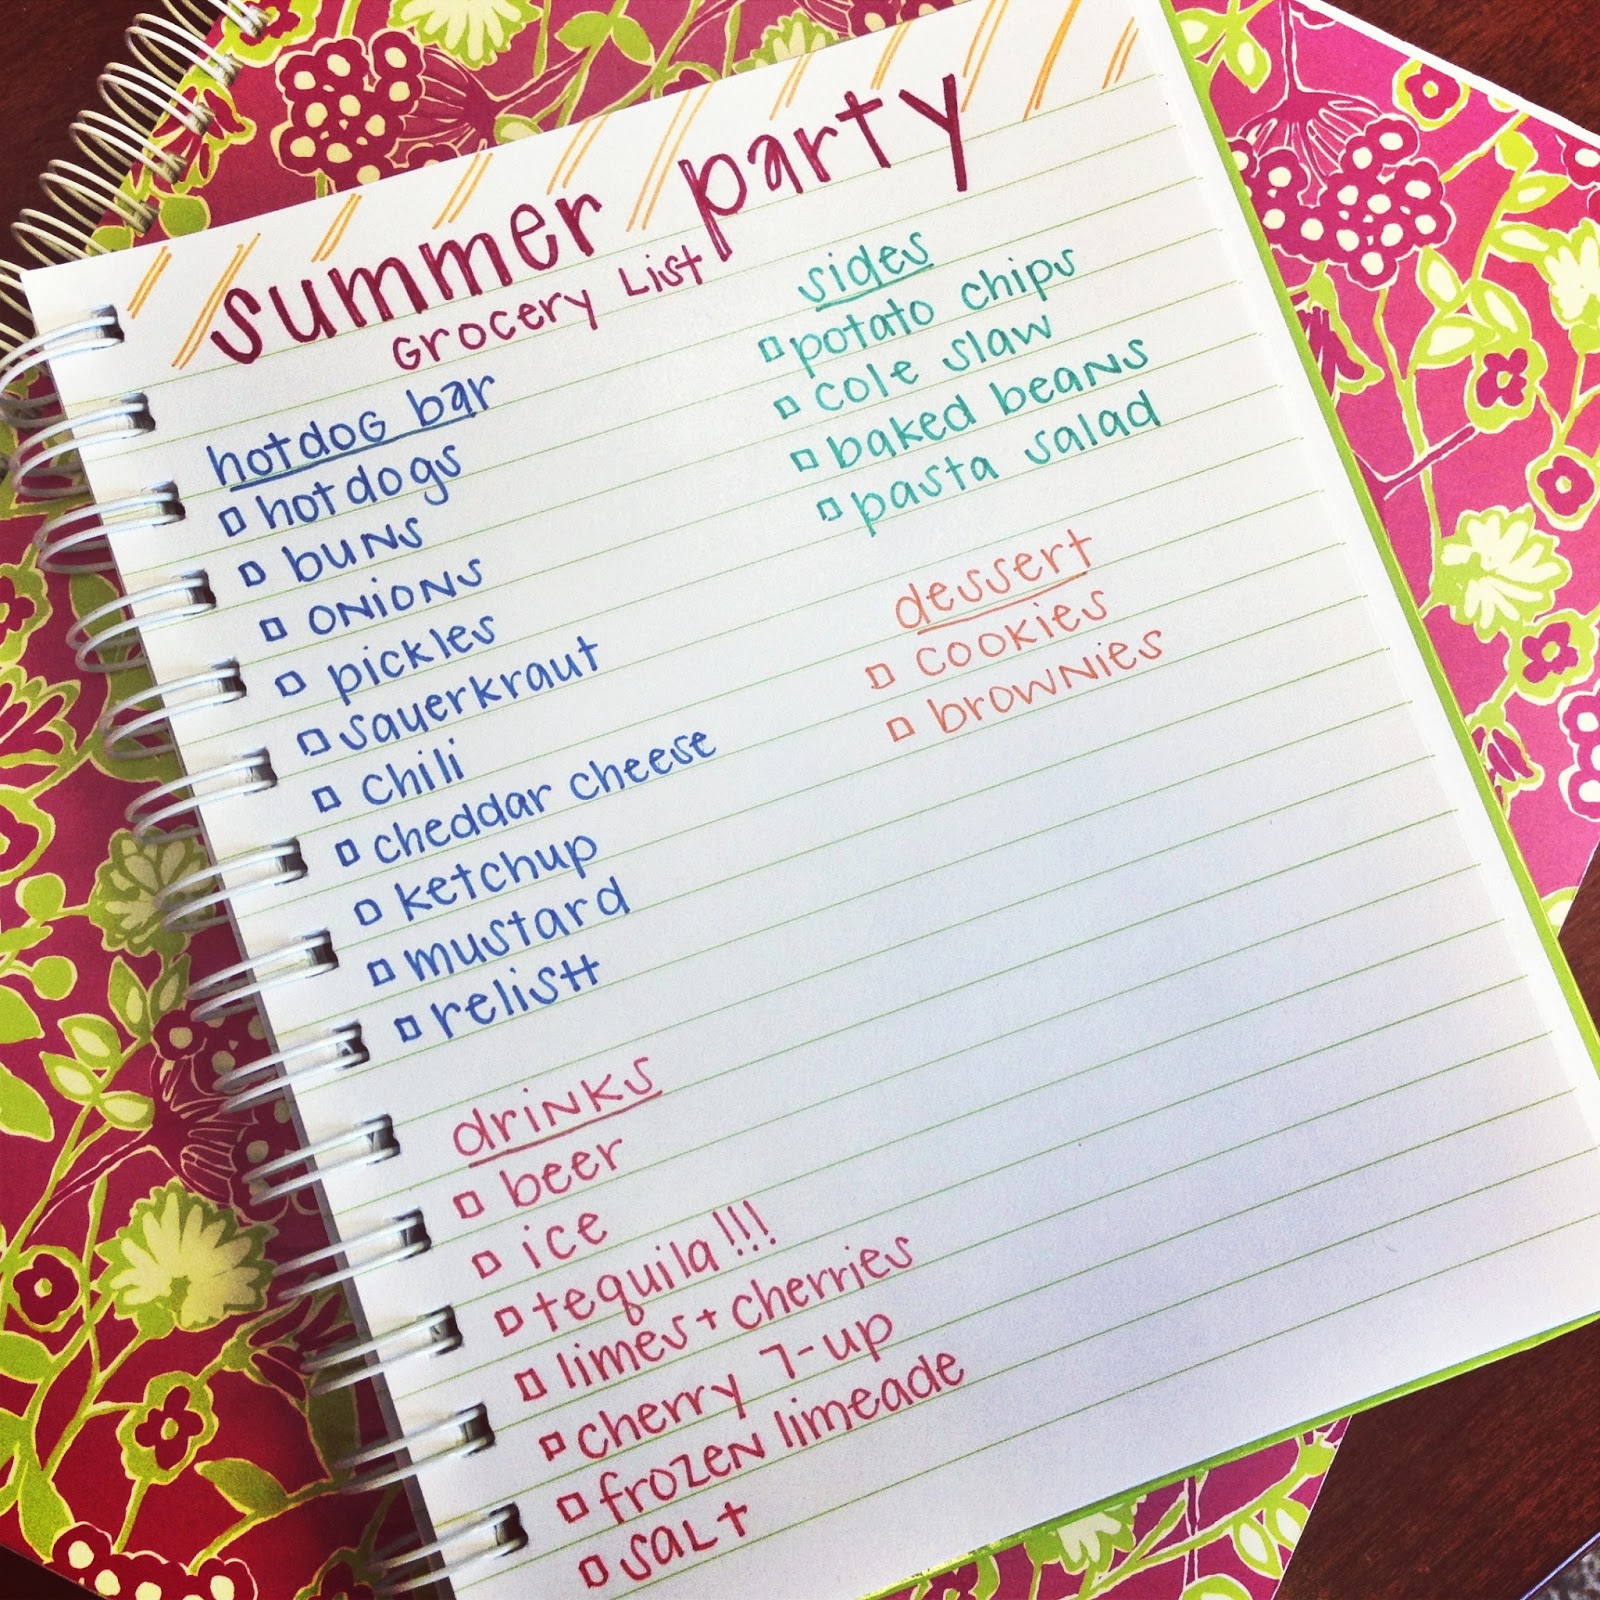 summer party
Grocery List
hotdog bar
hotdogs
buns
onions
pickles
sauerkraut
chili
cheddar cheese
ketchup
mustard
relish
drinks
beer
ice
tequila!!!
limes + cherries
cherry 7-up
frozen limeade
salt
sides
potato chips
cole slaw
baked beans
pasta salad
dessert
cookies
brownies